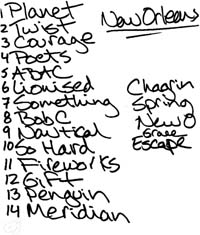 1 Planet
2 Twist
3 Courage
4 Poets
5 ABAC
6 Lionised
7 Something
8 BobC
9 Nautical
10 So Hard
11 Fireworks
12 Gift
13 Penguin
14 Meridian
New Orleans
Chagrin
Spring
New O
Grace
Escape